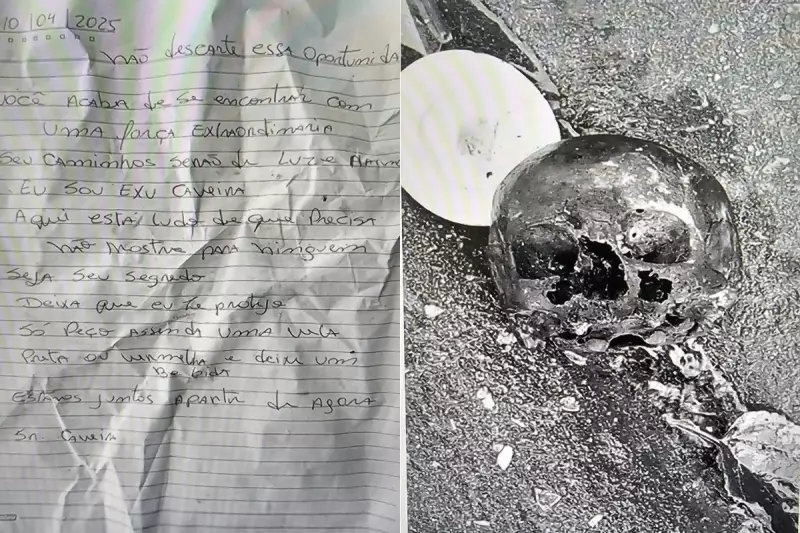 10 | 04 | 2025
NÃO descarte essa oportunida
você Acaba de se encontrar com
uma força Extraordinária
Seu Caminhos Serão de Luz e
Eu Sou EXU CAVEIRA
Aqui está tudo de que Precisa
Não Mostre para ninguem
Seja Seu Segredo
Deixa que eu te proteja
Só Peço Assenda uma vela
Preta ou vermelha e deixe um
Bebida
Estamos juntos Apartir de Agora
Sr. Caveira